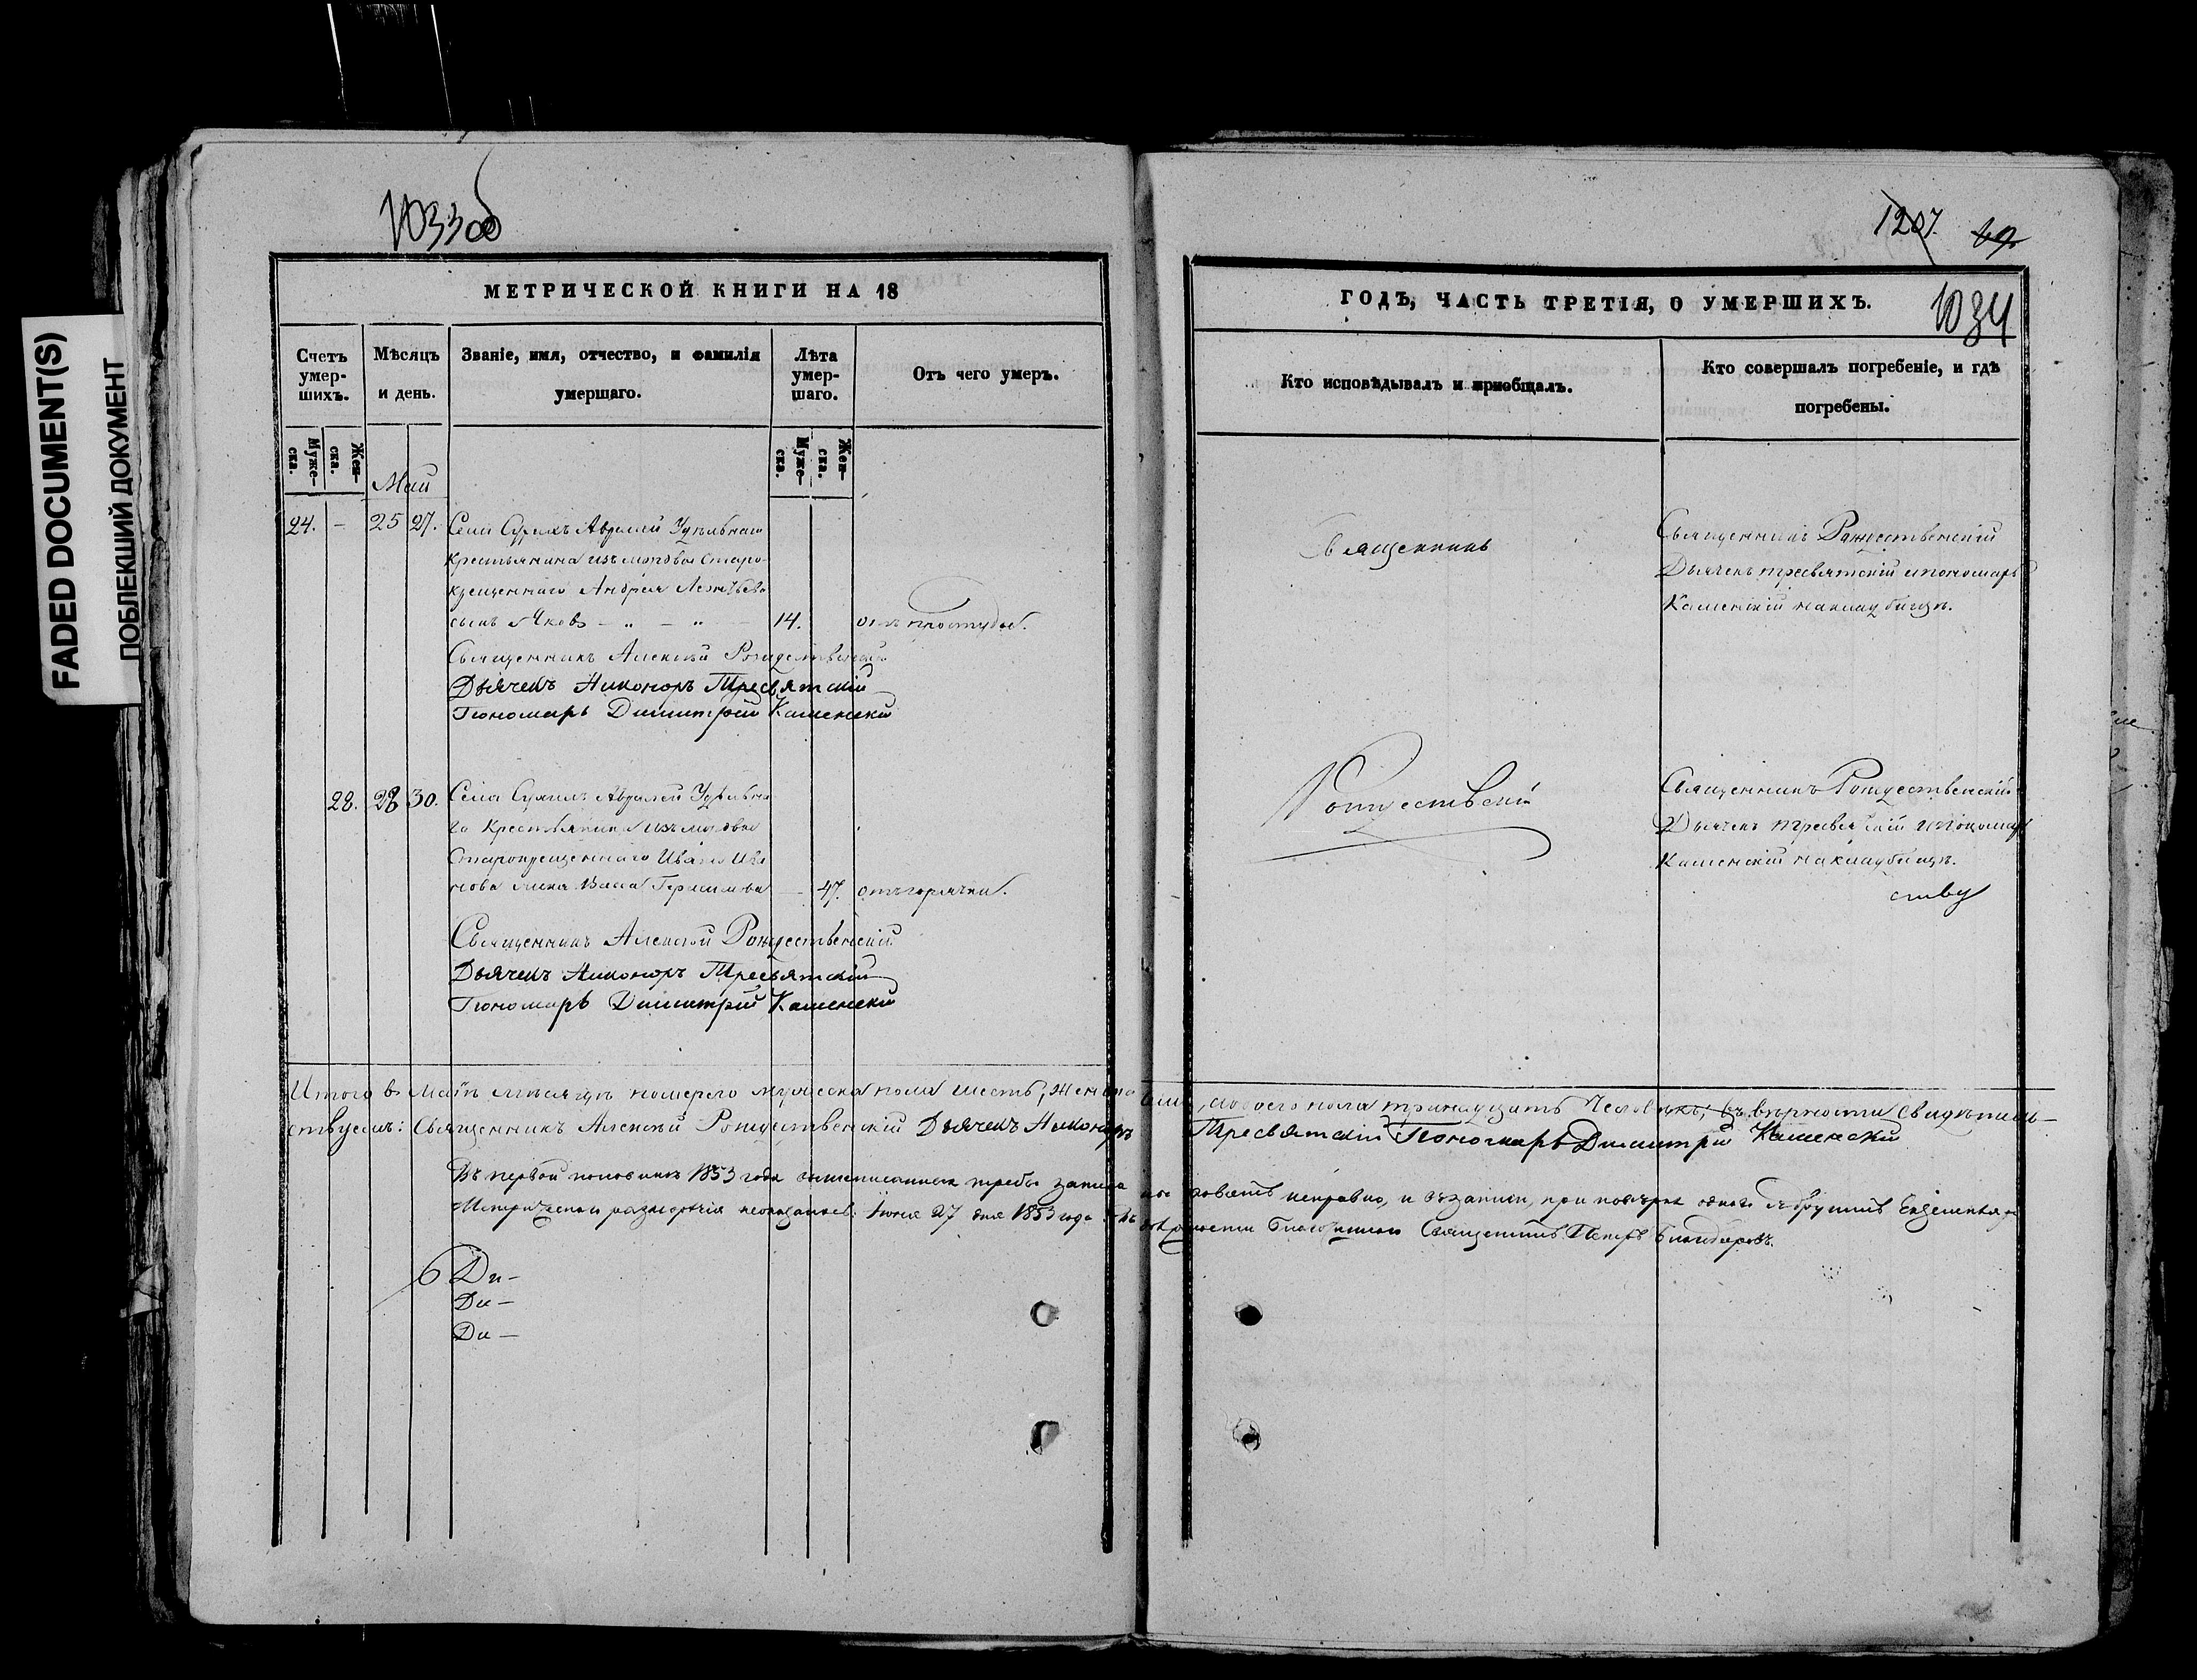 FADED DOCUMENT(S)
ПОБЛЕКШИЙ ДОКУМЕНТ
1033об
МЕТРИЧЕСКОЙ КНИГИ НА 18
Счетъ умер-шихъ.
Мѣсяцъ и день.
Званіе, имя, отчество, и фамилія умершаго.
Лѣта умер-шаго.
Отъ чего умеръ.
Муже-ска.
Жен-ска.
Муже-ска.
Жен-ска.
Май
24. – 25 27. Села Авралей Удѣльнаго
крестьянина изъ мордвы старо-
крещеннаго Андрея Леонтьева
сынъ Яковъ – „ – „ – 14. отъ простуды.
Священникъ Алексѣй Рождественскій
Дьячекъ Никоноръ Тресвятскій
Пономарь Димитрій Каменскій
28. 28 30. Села Авралей Удѣльна
го Крестьянина изъ мордвы
Старокрещеннаго Ивана Ива
нова жена Васса Герасимова – 47. отъ горячки.
Священникъ Алексѣй Рождественскій
Дьячекъ Никоноръ Тресвятскій
Пономарь Димитрій Каменскій
1207. 69.
ГОДЪ, ЧАСТЬ ТРЕТІЯ, О УМЕРШИХЪ.
1034
Кто исповѣдывалъ и приобщалъ.
Кто совершалъ погребеніе, и гдѣ погребены.
Священникъ
Священникъ Рождественскій
Дьячекъ Тресвятскій и пономарь
Каменскій на кладбищѣ.
Рождественскій
Священникъ Рождественскій
Дьячекъ Тресвятскій и пономарь
Каменскій на кладбищѣ.
ству
Итого въ Маѣ мѣсяцѣ померло мужеска пола шесть, женска семь, обоего пола тринадцать человѣкъ; въ вѣрности свидѣтель-
ствуемъ: Священникъ Алексѣй Рождественскій Дьячекъ Никоноръ Тресвятскій Пономарь Димитрій Каменскій
Въ первой половинѣ 1853 года требы неправно, и при повѣркѣ
неоказалось. Іюня 27 дня 1853 года. Въ Благочинный Священникъ Петръ
6 Ди–
Ди–
Ди–